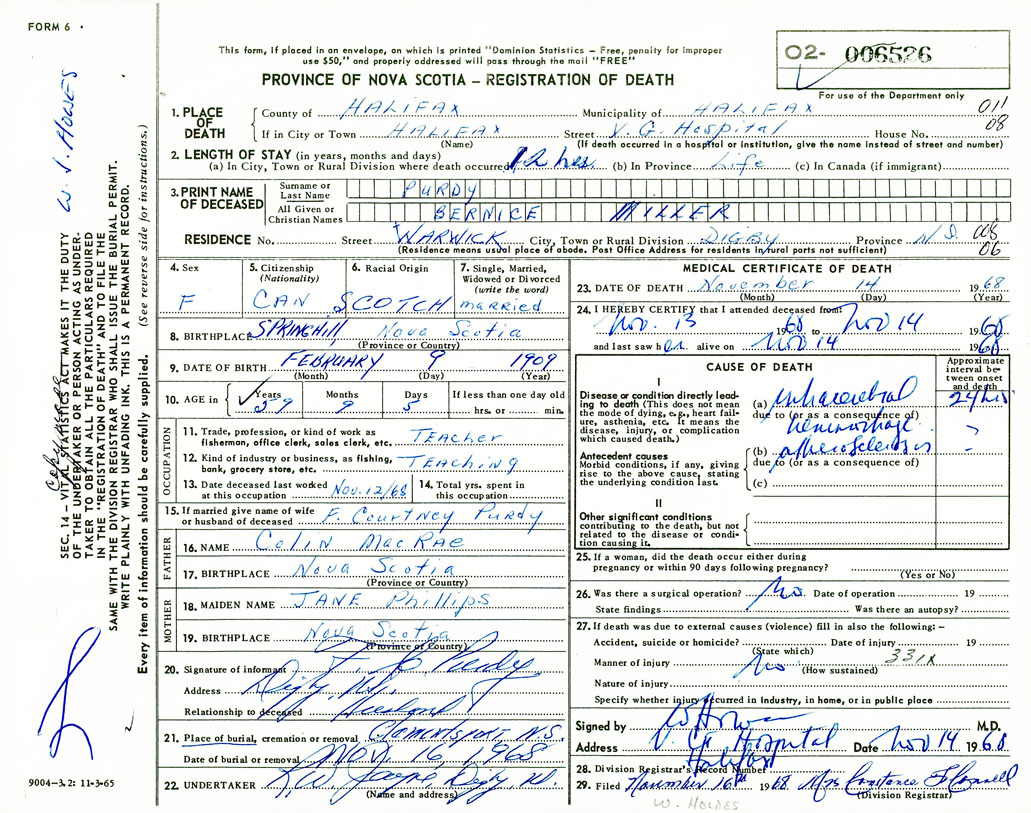 FORM 6
This form, if placed in an envelope, on which is printed "Dominion Statistics – Free, penalty for improper
use $50," and properly addressed will pass through the mail "FREE"
PROVINCE OF NOVA SCOTIA – REGISTRATION OF DEATH
02- 006526
For use of the Department only
1. PLACE OF DEATH
County of HALIFAX Municipality of HALIFAX 011
If in City or Town HALIFAX Street V. G. Hospital House No. 08
(Name) (If death occurred in a hospital or institution, give the name instead of street and number)
2. LENGTH OF STAY (in years, months and days)
(a) In City, Town or Rural Division where death occurred 12 hrs. (b) In Province Life (c) In Canada (if immigrant)
3. PRINT NAME OF DECEASED
Surname or Last Name PURDY
All Given or Christian Names BERNICE MILLER
RESIDENCE No. Street WARWICK City, Town or Rural Division DIGBY Province N.S. 008
(Residence means usual place of abode. Post Office Address for residents in rural parts not sufficient) 06
4. Sex F
5. Citizenship (Nationality) CAN
6. Racial Origin SCOTCH
7. Single, Married, Widowed or Divorced (write the word) married
8. BIRTHPLACE SPRINGHILL Nova Scotia
(Province or Country)
9. DATE OF BIRTH FEBRUARY 9 1909
(Month) (Day) (Year)
10. AGE in Years 59 Months 9 Days 5 If less than one day old hrs. or min.
OCCUPATION
11. Trade, profession, or kind of work as
fisherman, office clerk, sales clerk, etc. TEAcher
12. Kind of industry or business, as fishing,
bank, grocery store, etc. TEAching
13. Date deceased last worked
at this occupation Nov. 12/68
14. Total yrs. spent in
this occupation
15. If married give name of wife
or husband of deceased F. Courtney Purdy
FATHER
16. NAME Colin MacRae
17. BIRTHPLACE Nova Scotia
(Province or Country)
MOTHER
18. MAIDEN NAME JANE Phillips
19. BIRTHPLACE Nova Scotia
(Province or Country)
20. Signature of informant F. C. Purdy
Address Digby N.S.
Relationship to deceased Husband
21. Place of burial, cremation or removal Clementsport, N.S.
Date of burial or removal NOV. 16, 1968
22. UNDERTAKER
(Name and address)
MEDICAL CERTIFICATE OF DEATH
23. DATE OF DEATH November 14 1968
(Month) (Day) (Year)
24. I HEREBY CERTIFY that I attended deceased from
Nov. 13 1968 to Nov 14 1968
and last saw her alive on Nov 14 1968
CAUSE OF DEATH
Approximate interval between onset and death
I
Disease or condition directly leading
to death (This does not mean
the mode of dying, e.g., heart failure,
asthenia, etc. It means the
disease, injury, or complication
which caused death.)
(a) intracerebral 24 hrs
due to (or as a consequence of)
hemorrhage
Antecedent causes
Morbid conditions, if any, giving
rise to the above cause, stating
the underlying condition last.
(b) atherosclerosis
due to (or as a consequence of)
(c)
II
Other significant conditions
contributing to the death, but not
related to the disease or condition
causing it.
25. If a woman, did the death occur either during
pregnancy or within 90 days following pregnancy?
(Yes or No)
26. Was there a surgical operation? No. Date of operation 19
State findings Was there an autopsy?
27. If death was due to external causes (violence) fill in also the following:–
Accident, suicide or homicide? Date of injury 19
(State which) 331X
Manner of injury No (How sustained)
Nature of injury
Specify whether injury occurred in industry, in home, or in public place
Signed by M.D.
Address V. G. Hospital Date Nov 14 1968
Halifax
28. Division Registrar's Record Number
29. Filed November 16th 1968 Mrs Constance
(Division Registrar)
W. HOLDES
W. J. HOLDES
SEC. 14 – VITAL STATISTICS ACT MAKES IT THE DUTY
OF THE UNDERTAKER OR PERSON ACTING AS UNDERTAKER
TO OBTAIN ALL THE PARTICULARS REQUIRED
IN THE "REGISTRATION OF DEATH" AND TO FILE THE
SAME WITH THE DIVISION REGISTRAR WHO SHALL ISSUE THE BURIAL PERMIT.
WRITE PLAINLY WITH UNFADING INK. THIS IS A PERMANENT RECORD.
Every item of information should be carefully supplied. (See reverse side for instructions.)
9004–3.2: 11-3-65